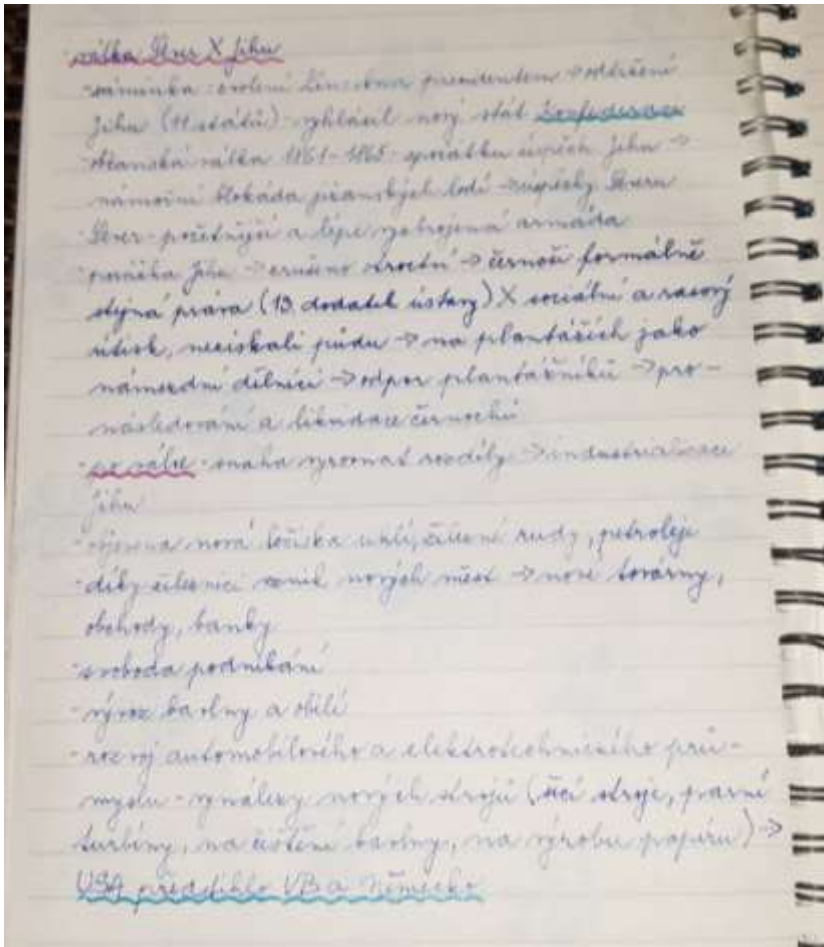 válka Sever X Jihu
-záminka: zvolení Lincolna prezidentem → odtržení
Jihu (11 států) - vyhlásil nový stát Konfederace
-občanská válka 1861-1865 - zpočátku úspěch Jihu →
námořní blokáda jižanských lodí → úspěchy Severu
-Sever - početnější a lépe vyzbrojená armáda
-porážka Jihu → zrušeno otroctví → černoši formálně
stejná práva (13. dodatek ústavy) X sociální a rasový
útisk, nezískali půdu → na plantážích jako
námezdní dělníci → odpor plantážníků → pro-
následování a likvidace černochů
-po válce - snaha vyrovnat rozdíly → industrializace
Jihu
-objevena nová ložiska uhlí, železné rudy, petroleje
-díky železnici vznik nových měst → nové továrny,
obchody, banky
-svoboda podnikání
-vývoz bavlny a obilí
-rozvoj automobilového a elektrotechnického prů-
myslu - vynálezy nových strojů (šicí stroje, parní
turbíny, na čištění bavlny, na výrobu papíru) →
USA předstihlo VB a Německo